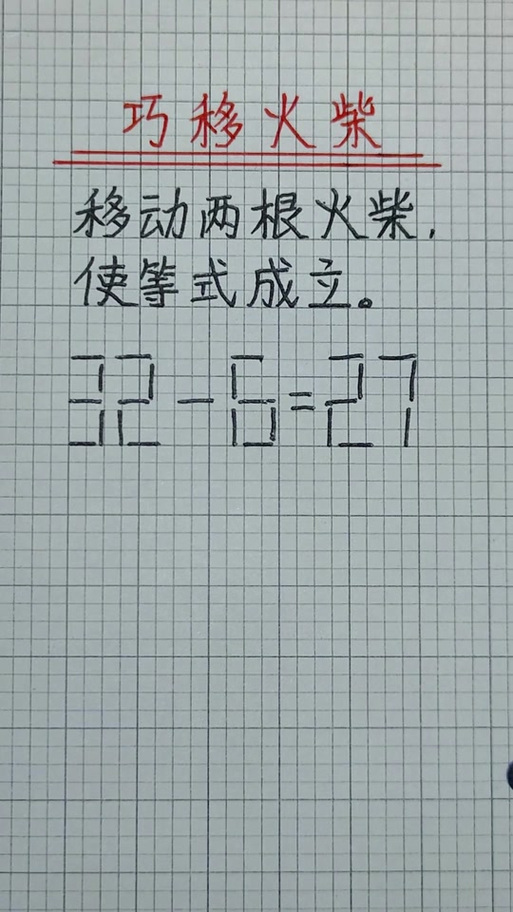 巧移火柴
移动两根火柴,
使等式成立。
32-6=27